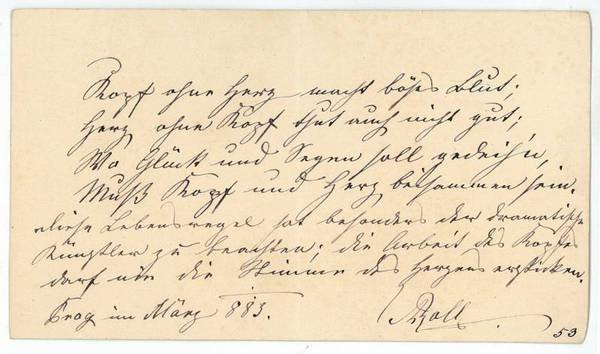 Kopf ohne Herz macht böses Blut;
Herz ohne Kopf thut auch nicht gut;
Wo Glück und Segen soll gedeih'n,
Muß Kopf und Herz beisammen sein.
Diese Lebensregel hat besonders der dramatische
Künstler zu beachten; die Arbeit des Kopfes
darf nie die Stimme des Herzens ersticken.
Prag im März 883. Roll
53